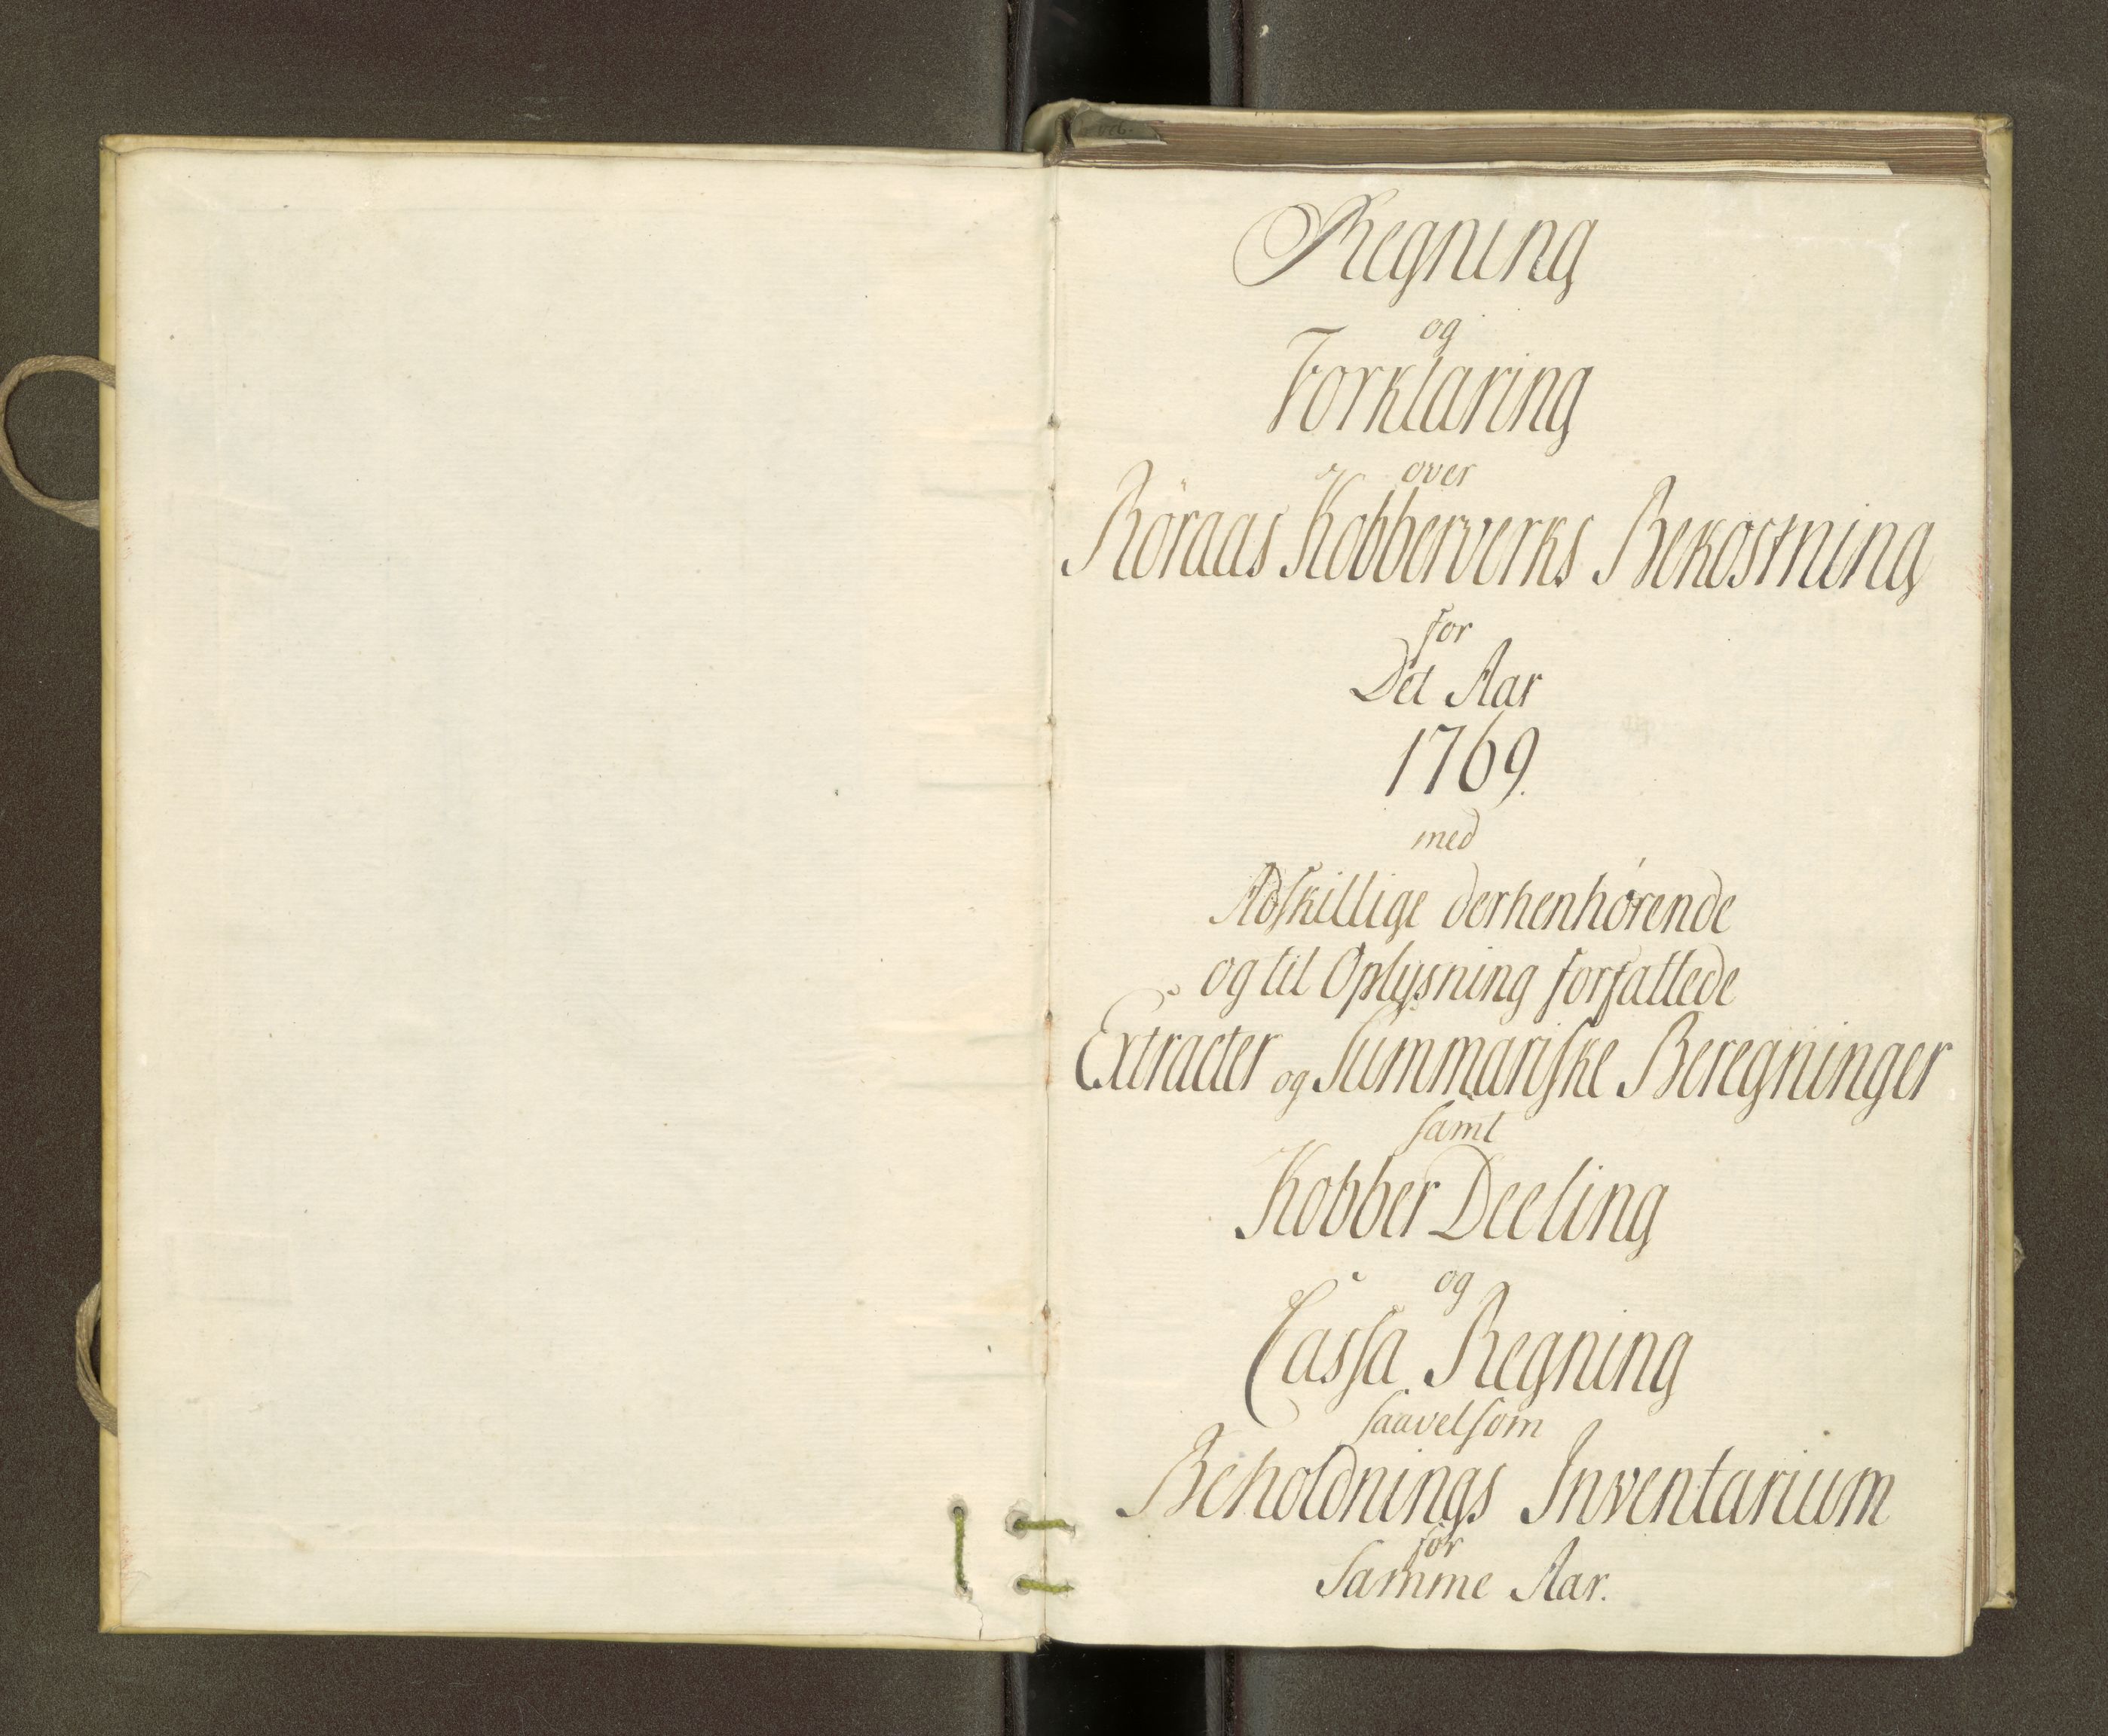 Regning
og
Forklaring
over
Röraas Kobberverks Bekostning
for
Det Aar
1769.
med
Adskillige derhenhörende
og til Oplysning forfattede
Extracter og Summariske Beregninger
samt
Kobber Deeling
og
Cassa Regning
saavelsom
Beholdnings Inventarium
for
Samme Aar.